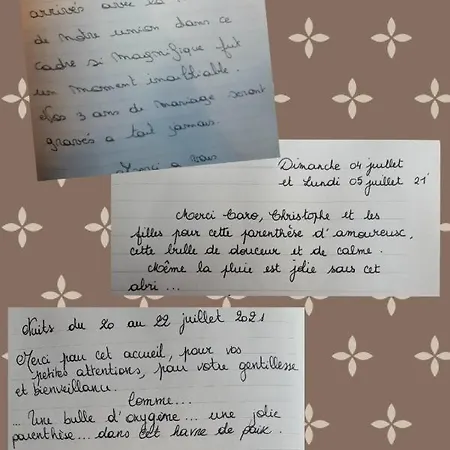 arrivés avec les
de notre union dans ce
cadre si magnifique fut
un moment inoubliable.
Nos 3 ans de mariage seront
gravés à tout jamais.
Merci à vous
Dimanche 04 juillet
et Lundi 05 juillet 21'
Merci Caro, Christophe et les
filles pour cette parenthèse d'amoureux,
cette bulle de douceur et de calme.
Même la pluie est jolie sous cet
abri ...
Nuits du 20 au 22 juillet 2021
Merci pour cet accueil, pour vos
petites attentions, pour votre gentillesse
et bienveillance.
Comme...
... Une bulle d'oxygène ... une jolie
parenthèse ... dans cet havre de paix.